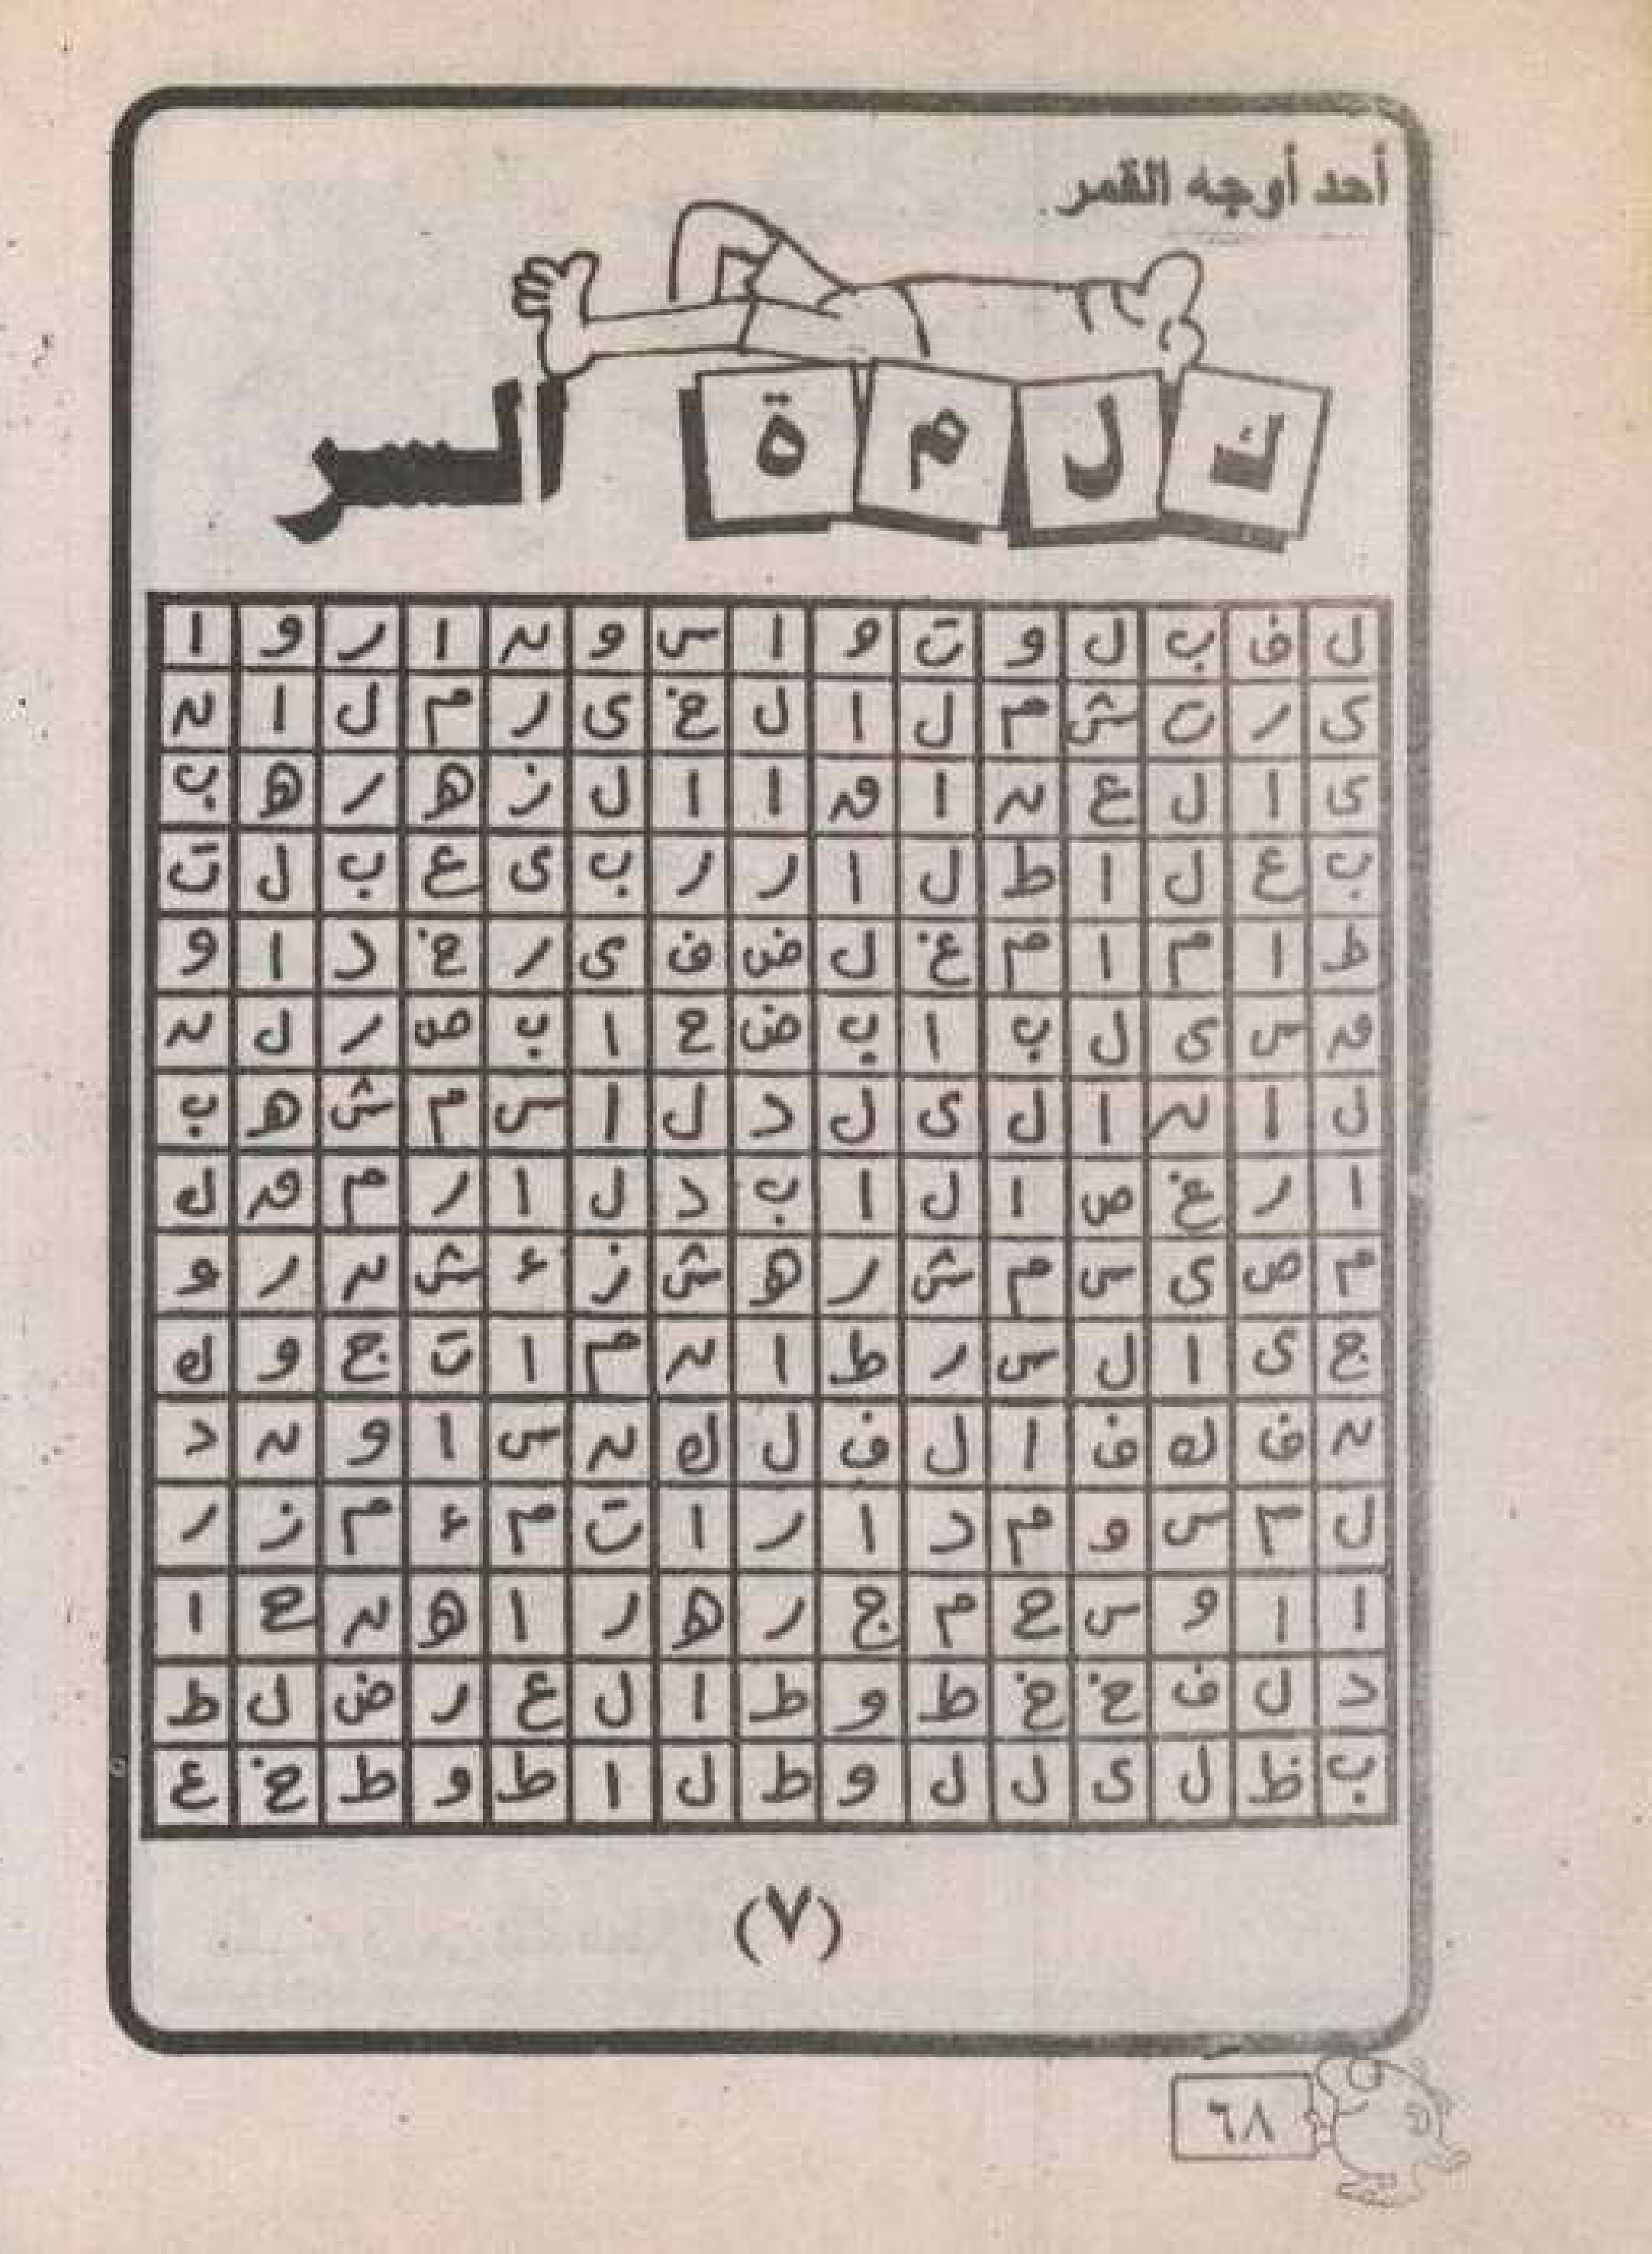 أحد أوجه القمر.
ك ل م ة السر
ل ف ب ل و ت و ا س و ن ا ر و ا
ى ر ن ش م ل ا ل غ ى ر م ل ا ن
ى ا ل ع ن ا ق ا ا ل ز ه ر ه ب
ب ع ل ا ط ل ا ر ر ب ى ع ب ل ت
ط ا م ا م غ ل ض ف ى ر خ د ا و
ق س ى ل ب ا ب ض ح ا ب ص ر ل ن
ل ا ن ا ل ى ل د ل ا س م ش ه ب
ا ر غ ص ا ل ا ب د ل ا ر م ق ك
م ص ى س م ش ر ه ش ز ء ش ن ر و
ج ى ا ل س ر ط ا ن م ا ت ج و ك
ن ف ك ف ا ل ف ل ك ن س ا و ن د
ل م س و م د ا ر ا ت م ء م ز ر
ا ا و س ح م ج ر ه ر ا ه ن ح ا
د ل ف خ خ ط و ط ا ل ع ر ض ل ط
ب ظ ل ى ل ل و ط ل ا ط و ط خ ع
(٧)
٦٨